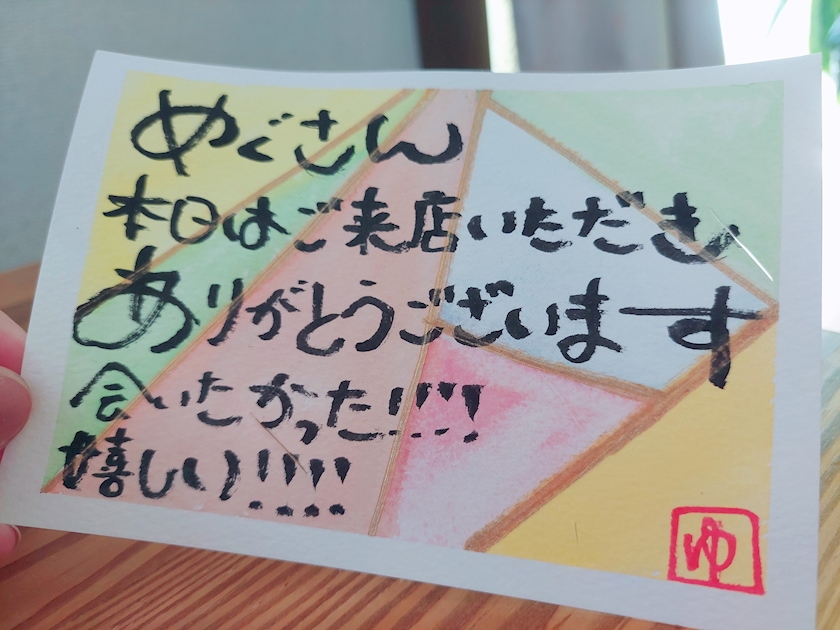 めぐさん
本日はご来店いただき
ありがとうございます
会いたかった!!!!
嬉しい!!!!
ゆ